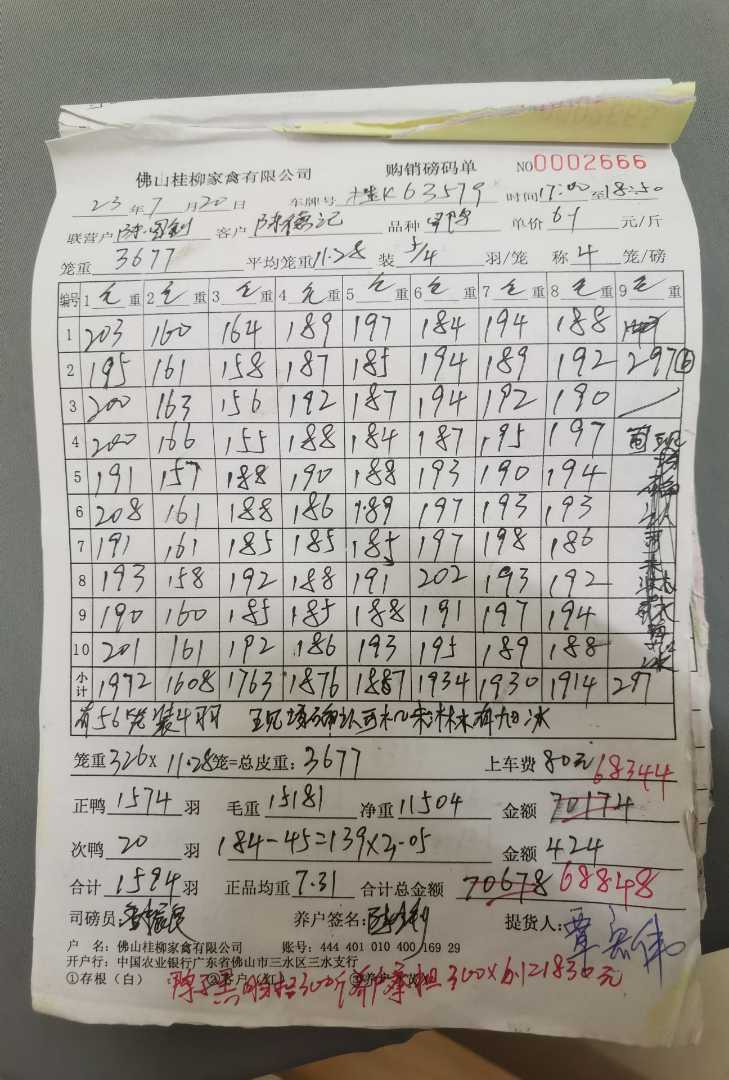 佛山桂柳家禽有限公司 购销磅码单 NO0002666
23年7月20日 车牌号 桂K63579 时间17:00至18:50
联营户 客户 陈德记 品种 单价6.1 元/斤
笼重 3677 平均笼重11.28 装5/4 羽/笼 称4笼/磅
编号 1 毛 重 2 毛 重 3 毛 重 4 毛 重 5 毛 重 6 毛 重 7 毛 重 8 毛 重 9 毛 重
1 203 160 164 189 197 184 194 188
2 195 161 158 187 185 194 189 192 297⑥
3 200 163 156 192 187 194 192 190
4 200 166 155 188 184 187 195 197
5 191 157 188 190 188 193 190 194
6 208 161 188 186 189 197 193 193
7 191 161 185 185 185 197 198 186
8 193 158 192 188 191 202 193 192
9 190 160 185 185 188 191 197 194
10 201 161 192 186 193 195 189 188
小计 1972 1608 1763 1876 1887 1934 1930 1914 297
有56笼装4羽 现场确认司机未淋水有加冰
笼重326×11.28笼=总皮重:3677 上车费 80元 68344
正鸭1574羽 毛重15181 净重11504 金额 70174
次鸭20羽 184-45=139×3.05 金额 424
合计1594羽 正品均重7.31 合计总金额 70678 68848
司磅员: 养户签名: 提货人:覃宏伟
户 名:佛山桂柳家禽有限公司 账号:444 401 010 400 169 29
开户行:中国农业银行广东省佛山市三水区三水支行
①存根(白) ②客户(红)
300斤 300×6.1=1830元